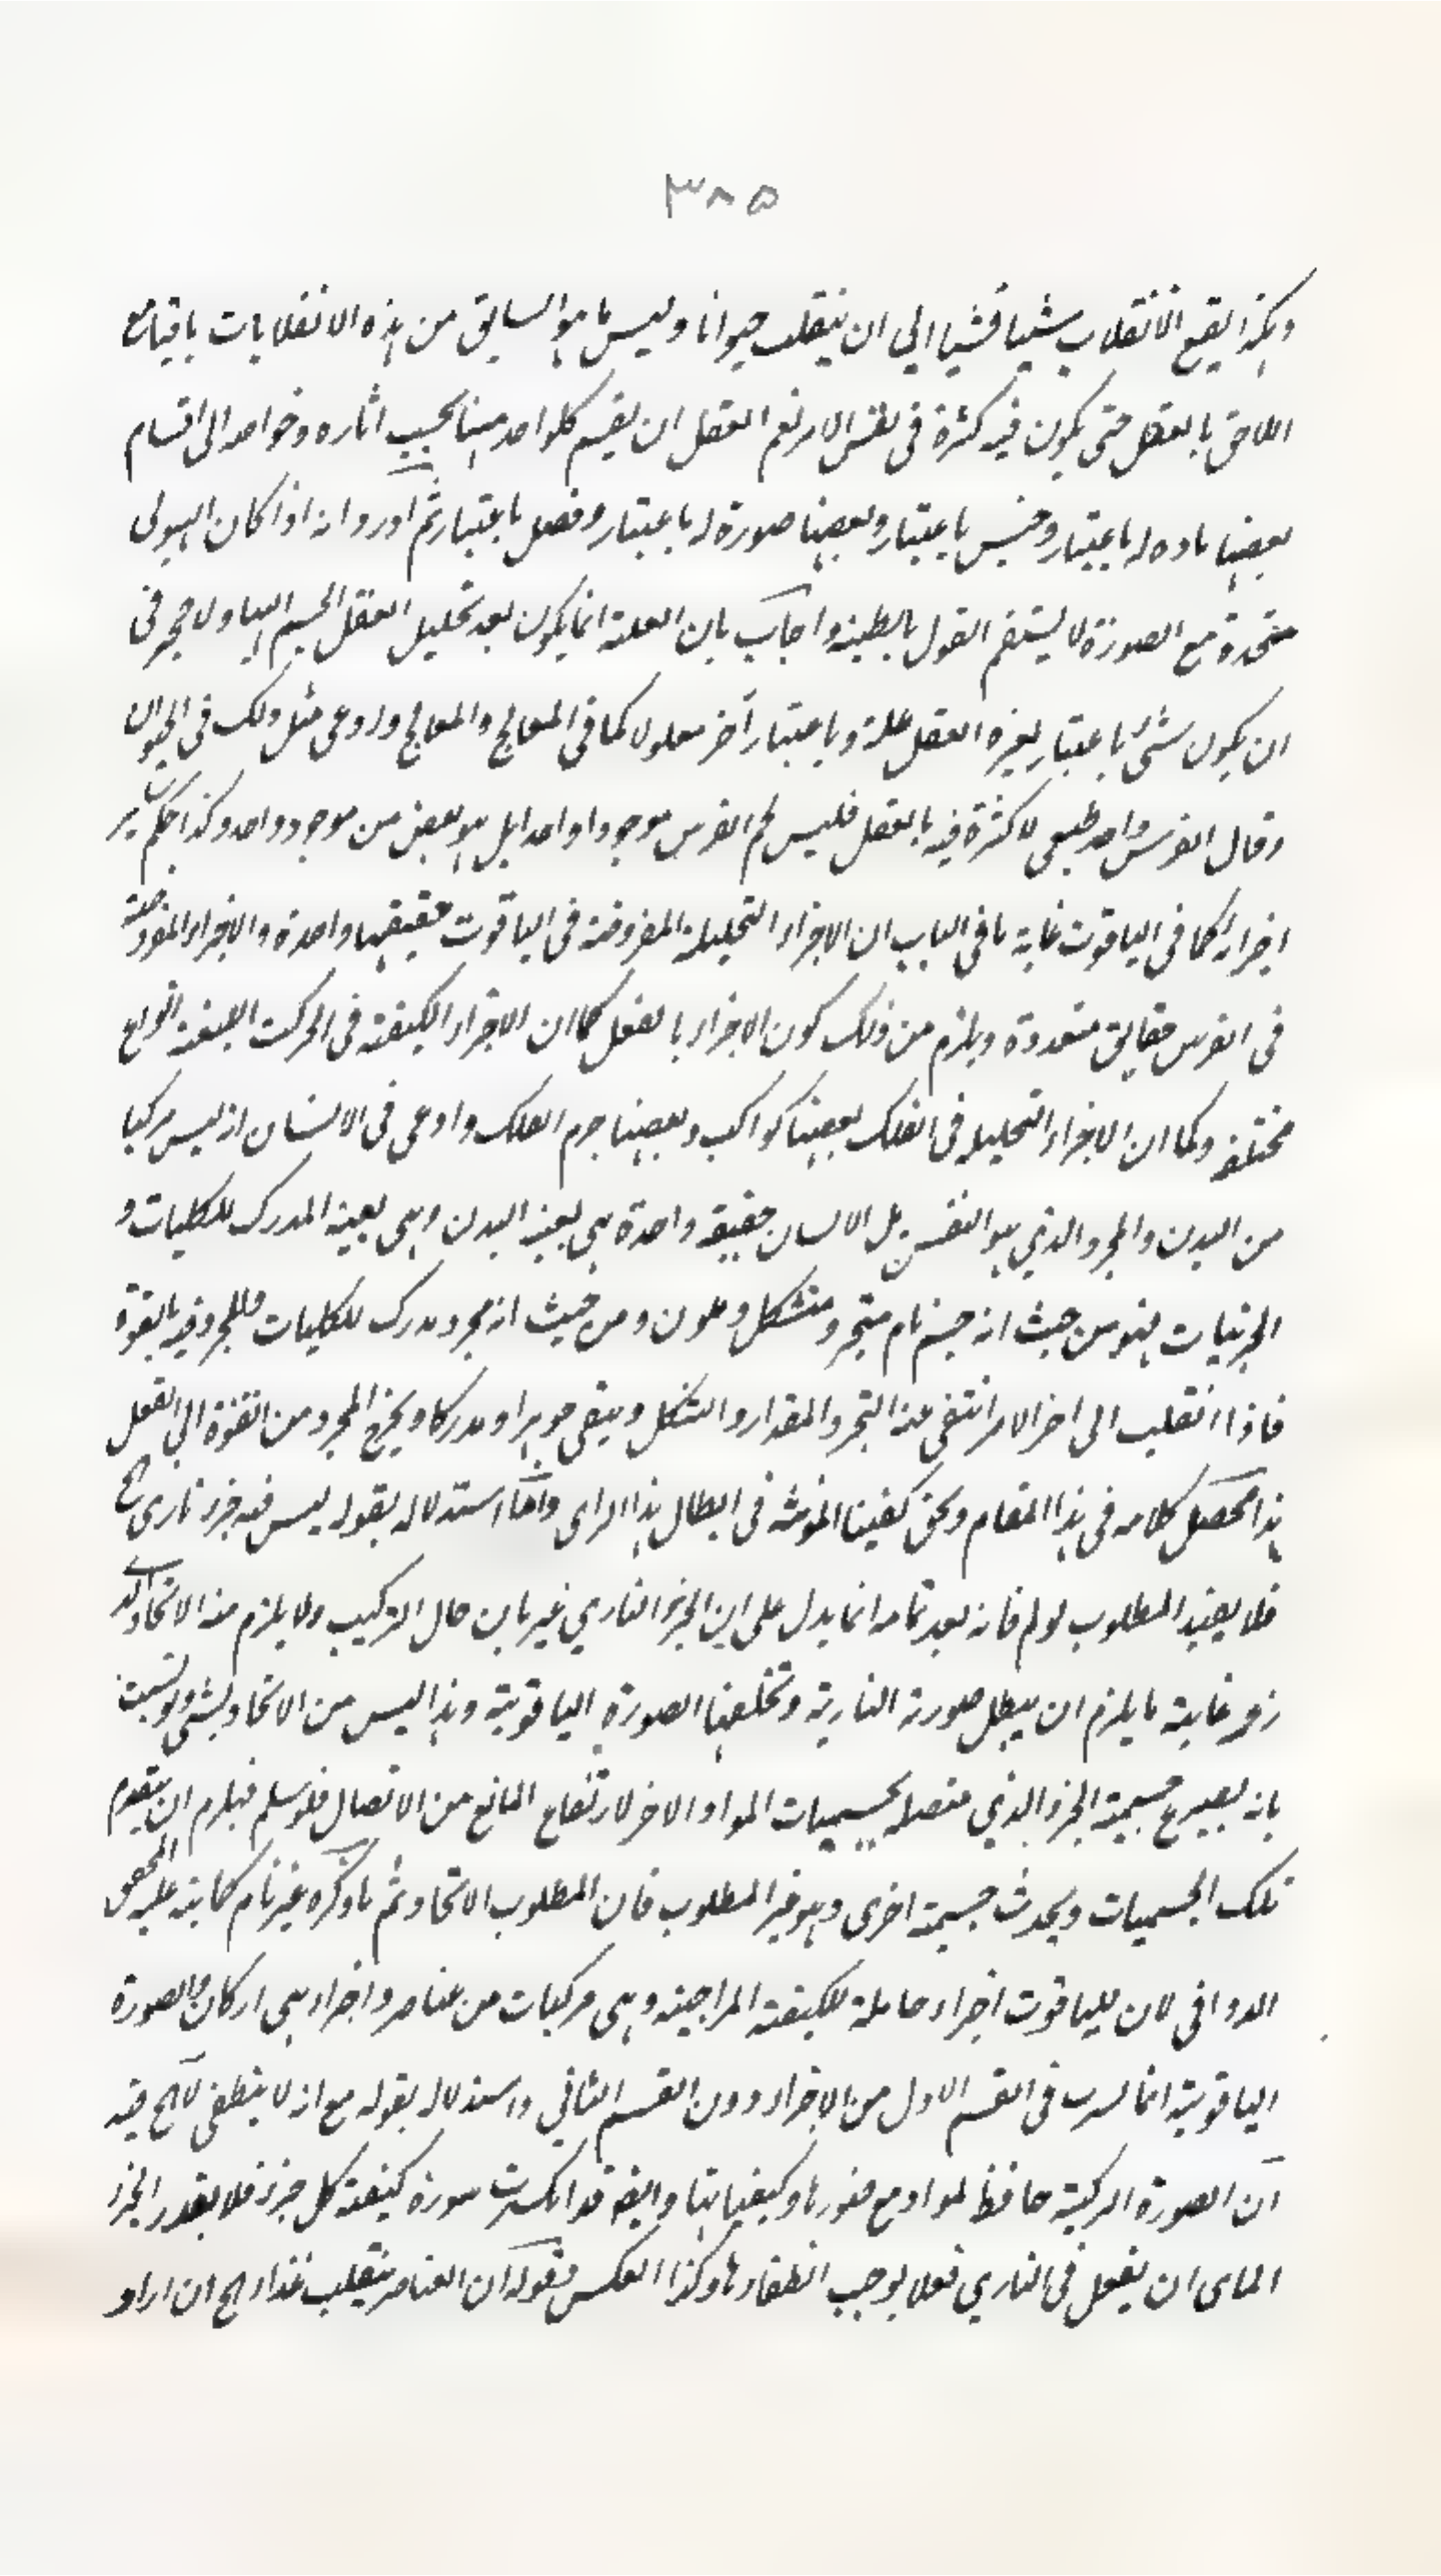 ٣٨٥
وهكذا يقع الانقلاب شيئا فشيئا الى ان ينقلب حيوانا وليس ما هو السابق من هذه الانقلابات باقيا مع
اللاحق بالفعل حتى يكون فيه كثرة فى نفس الامر نعم العقل ان يقسم كلواحد منها بحسب اثاره وخواصه الى اقسام
بعضها ماده له باعتبار وجنس باعتبار وبعضها صورة له باعتبار وفصل باعتبار ثم اورد انه اذا كان الهيولى
متحدة مع الصورة لا يستقم القول بالعلية واجاب بان العلية انما يكون بعد تحليل العقل الجسم اليها ولا حجر فى
ان يكون شئ باعتبار يعتبره العقل علة وباعتبار آخر معلولا كما فى المعالج والمعالج وادعى مثل ذلك فى الحيوان
وقال الفرس واحد طبيعى لا كثرة فيه بالفعل فليس لحم الفرس موجودا واحدا بل هو بعض من موجود واحد وكذا حكم سائر
اجزائه كما فى الياقوت غاية ما فى الباب ان الاجزاء التحليلية المفروضة فى الياقوت حقيقتها واحدة والاجزاء المفروضة
فى الفرس حقايق متعددة ويلزم من ذلك كون الاجزاء بالفعل كما ان الاجزاء الكيفية فى الحركت الكيفية انواع
مختلفة وكما ان الاجزاء التحليلية فى الفلك بعضها كواكب وبعضها جرم الفلك وادعى فى الانسان انه ليس مركبا
من البدن والمجرد الذي هو النفس بل الانسان حقيقة واحدة هى بعينه البدن وهى بعينه المدرك للكليات و
الجزئيات فهو من حيث انه جسم نام متحيز ومتشكل وملون ومن حيث انه مجرد مدرك للكليات فالمجرد فيه بالقوة
فاذا انقلب الى اخر الامر انتفى عنه التحيز والمقدار والشكل ويبقى جوهرا ومدركا ويخرج المجرد من القوة الى الفعل
هذا محصل كلامه فى هذا المقام ونحن كفينا المؤنة فى ابطال هذا الراى واما استدلاله بقوله ليس فيه جزء نارى الخ
فلا يفيد المطلوب لو لم فانه بعد تمامه انما يدل على ان الجزء الناري غير باق حال التركيب ولا يلزم منه الاتحاد الذي
زعمه غاية ما يلزم ان يبطل صورته النارية وتخلعها الصورة الياقوتية وهذا ليس من الاتحاد بشئ ولو تشبث
بانه يصير ح جسمية الجزء الذي متصلا بجسميات المواد الاخر لارتفاع المانع من الاتصال فلو سلم فيلزم ان ينعدم
تلك الجسميات ويحدث جسمية اخرى وهو غير المطلوب فان المطلوب الاتحاد ثم ما ذكره غير تام كما نبه عليه المحقق
الدوانى لان للياقوت اجزاء حاملة للكيفية المزاجية وهى مركبات من عناصر واجزاء هى اركان والصورة
الياقوتية انما تسرى فى القسم الاول من الاجزاء دون القسم الثاني واستدلاله بقوله مع انه لا ينطفى الخ فيه
ان الصورة التركيبية حافظة لمواد مع صورها وكيفياتها وايضه قد انكسرت سورة كيفية كل جزء فلا يقدر الجزء
المائى ان يفعل فى الناري فعلا يوجب انطفاءها وكذا العكس فقوله ان العناصر ينقلب غذاء الخ ان اراد